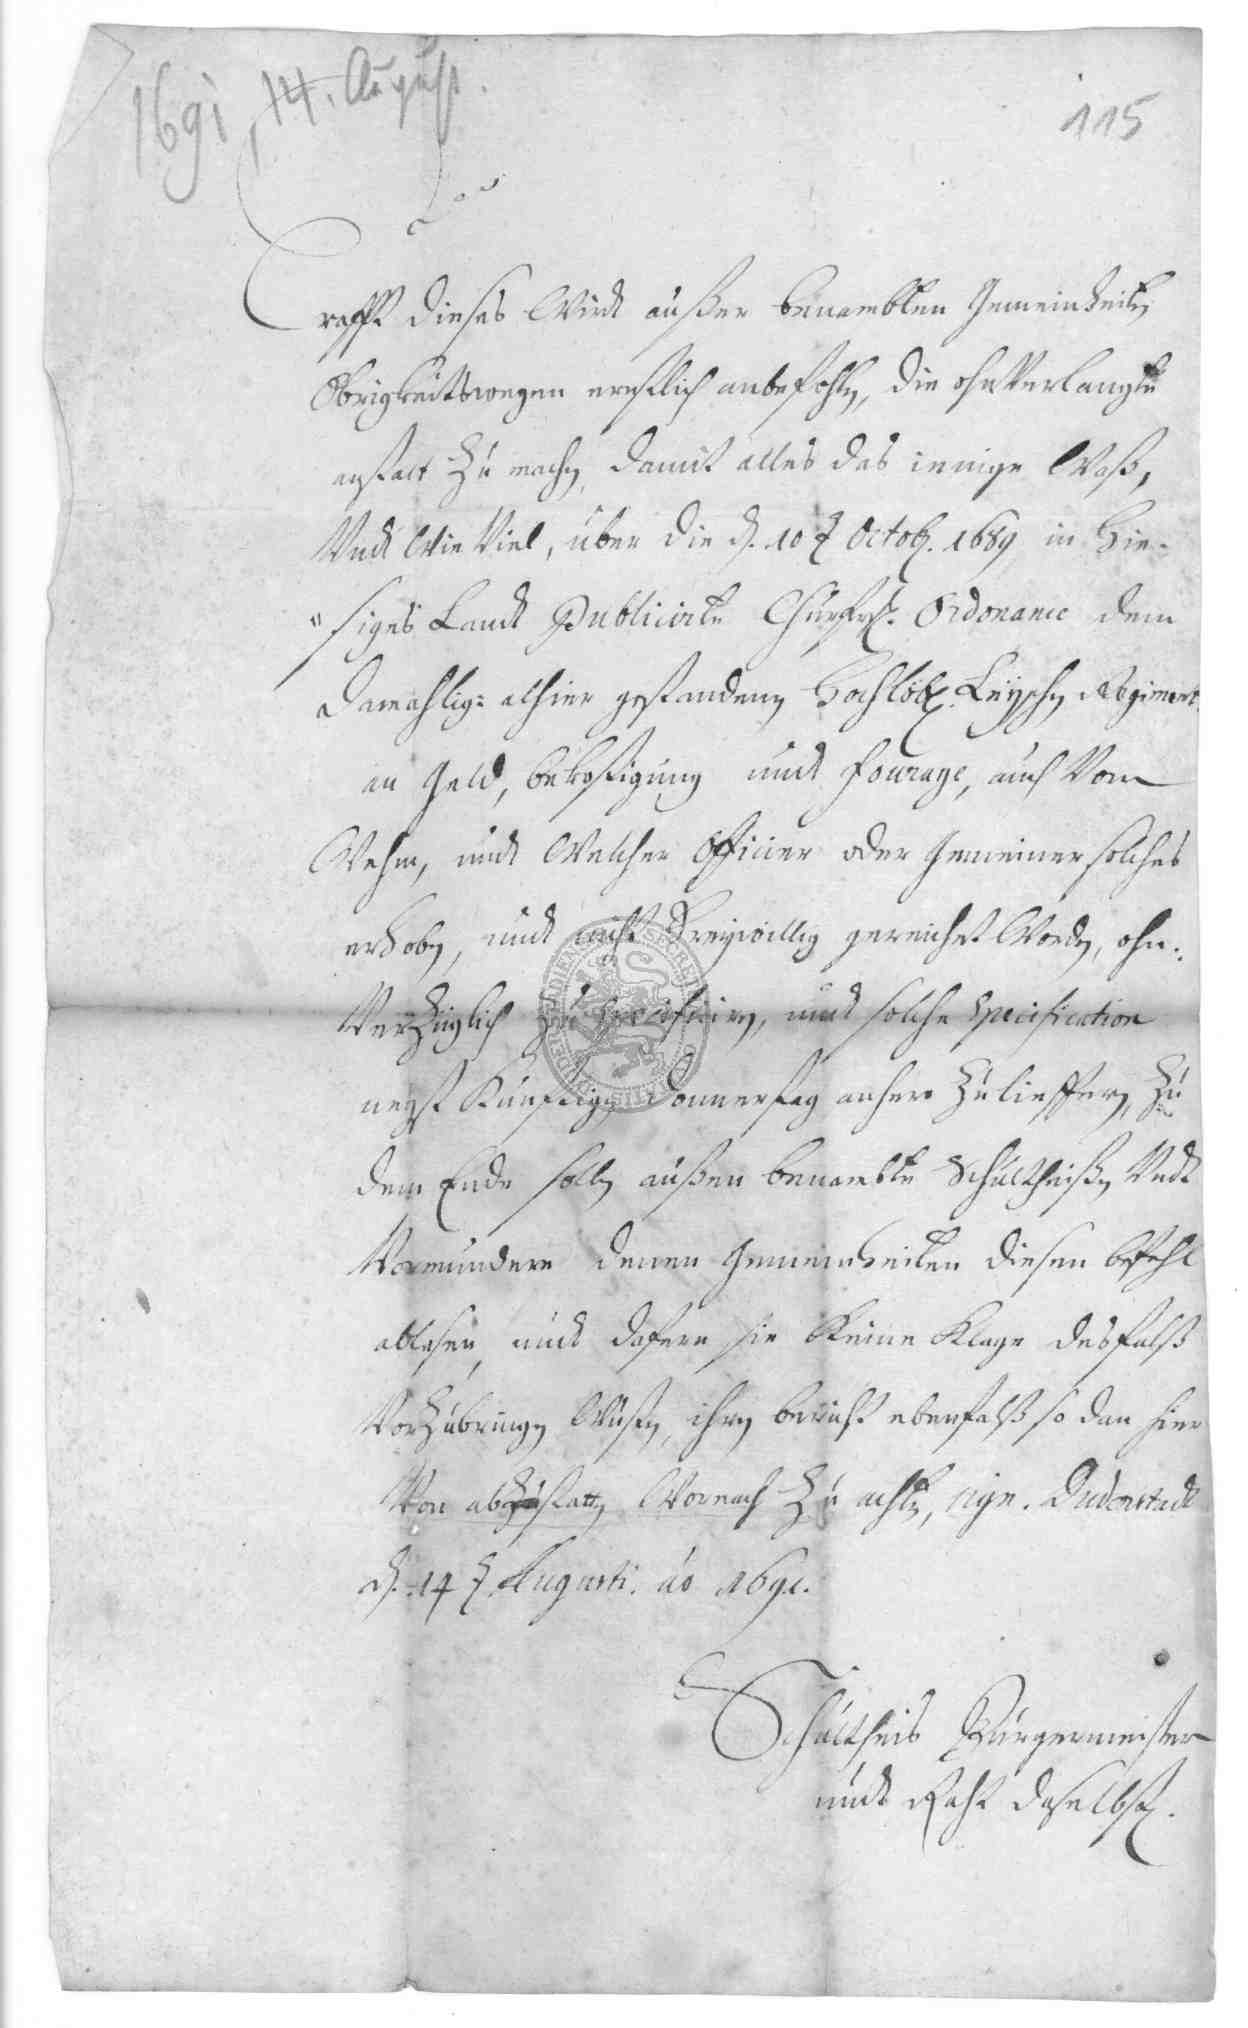 1691, 14. August.
115
Crafft dieses Wirdt außen benambten Gemeinheiten
Obrigkeitswegen ernstlich anbefohlen, die ohnverlangte
anstalt Zu machen, damit alles das ienige Waß,
Vndt Wie Viel, über die d. 10 t Octob. 1689 in Hie-
siges Landt Publicirte Churfrstl. Ordonance dem
damahlig: alhier gestandenen Hochlöbl. Regiment
an Geld, beköstigung undt fourage, auch Von
Wehm, undt Welcher Officier oder Gemeiner solches
erhoben, undt nicht Freywillig gereichet Worden, ohn-
Verzüglich zu specificiren, undt solche Specification
negst Künfftigen Donnerstag anhero Zu lieffern, Zu
dem Ende sollen außen benambte Schultheißen Undt
Vormundere denen Gemeinheiten diesen befehl
ablesen, undt dafern sie Keine Klage desfalß
Vorzubringen Wüsten, ihren bericht ebenfalß so dan hier
Von abzustatten, Wornach Zu achten, sign. Duderstadt
d. 14 t Augusti. ao 1691.
Schultheis Bürgermeister
undt Raht daselbst.